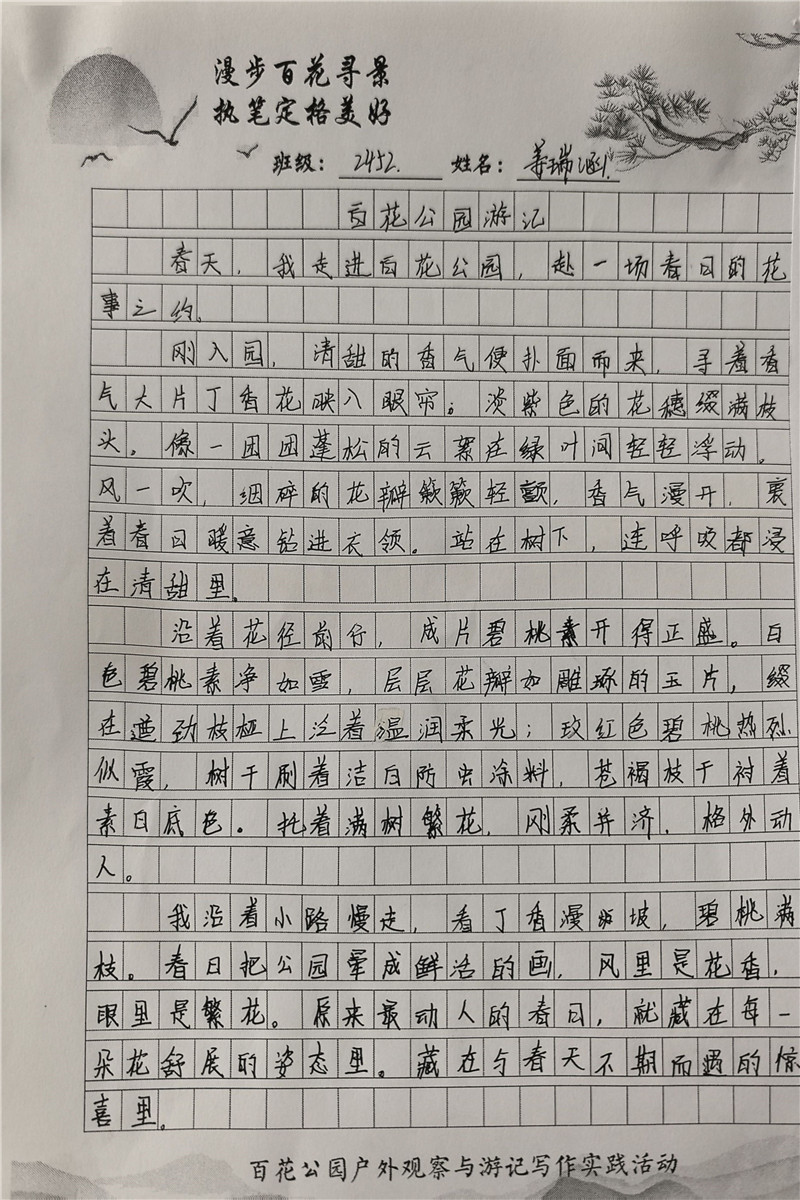 漫步百花寻景
执笔定格美好
班级：2452. 姓名：姜瑞涵
百花公园游记
春天，我走进百花公园，赴一场春日的花
事之约。
刚入园，清甜的香气便扑面而来，寻着香
气大片丁香花映入眼帘；淡紫色的花穗缀满枝
头。像一团团蓬松的云絮在绿叶间轻轻浮动。
风一吹，细碎的花瓣簌簌轻颤，香气漫开，裹
着春日暖意钻进衣领。站在树下，连呼吸都浸
在清甜里。
沿着花径前行，成片碧桃素开得正盛。白
色碧桃素净如雪，层层花瓣如雕琢的玉片，缀
在遒劲枝桠上泛着温润柔光；玫红色碧桃热烈
似霞，树干刷着洁白防虫涂料，苍褐枝干衬着
素白底色。托着满树繁花，刚柔并济，格外动
人。
我沿着小路慢走，看丁香漫坡，碧桃满
枝。春日把公园晕成鲜活的画，风里是花香，
眼里是繁花。原来最动人的春日，就藏在每一
朵花舒展的姿态里。藏在与春天不期而遇的惊
喜里。
百花公园户外观察与游记写作实践活动